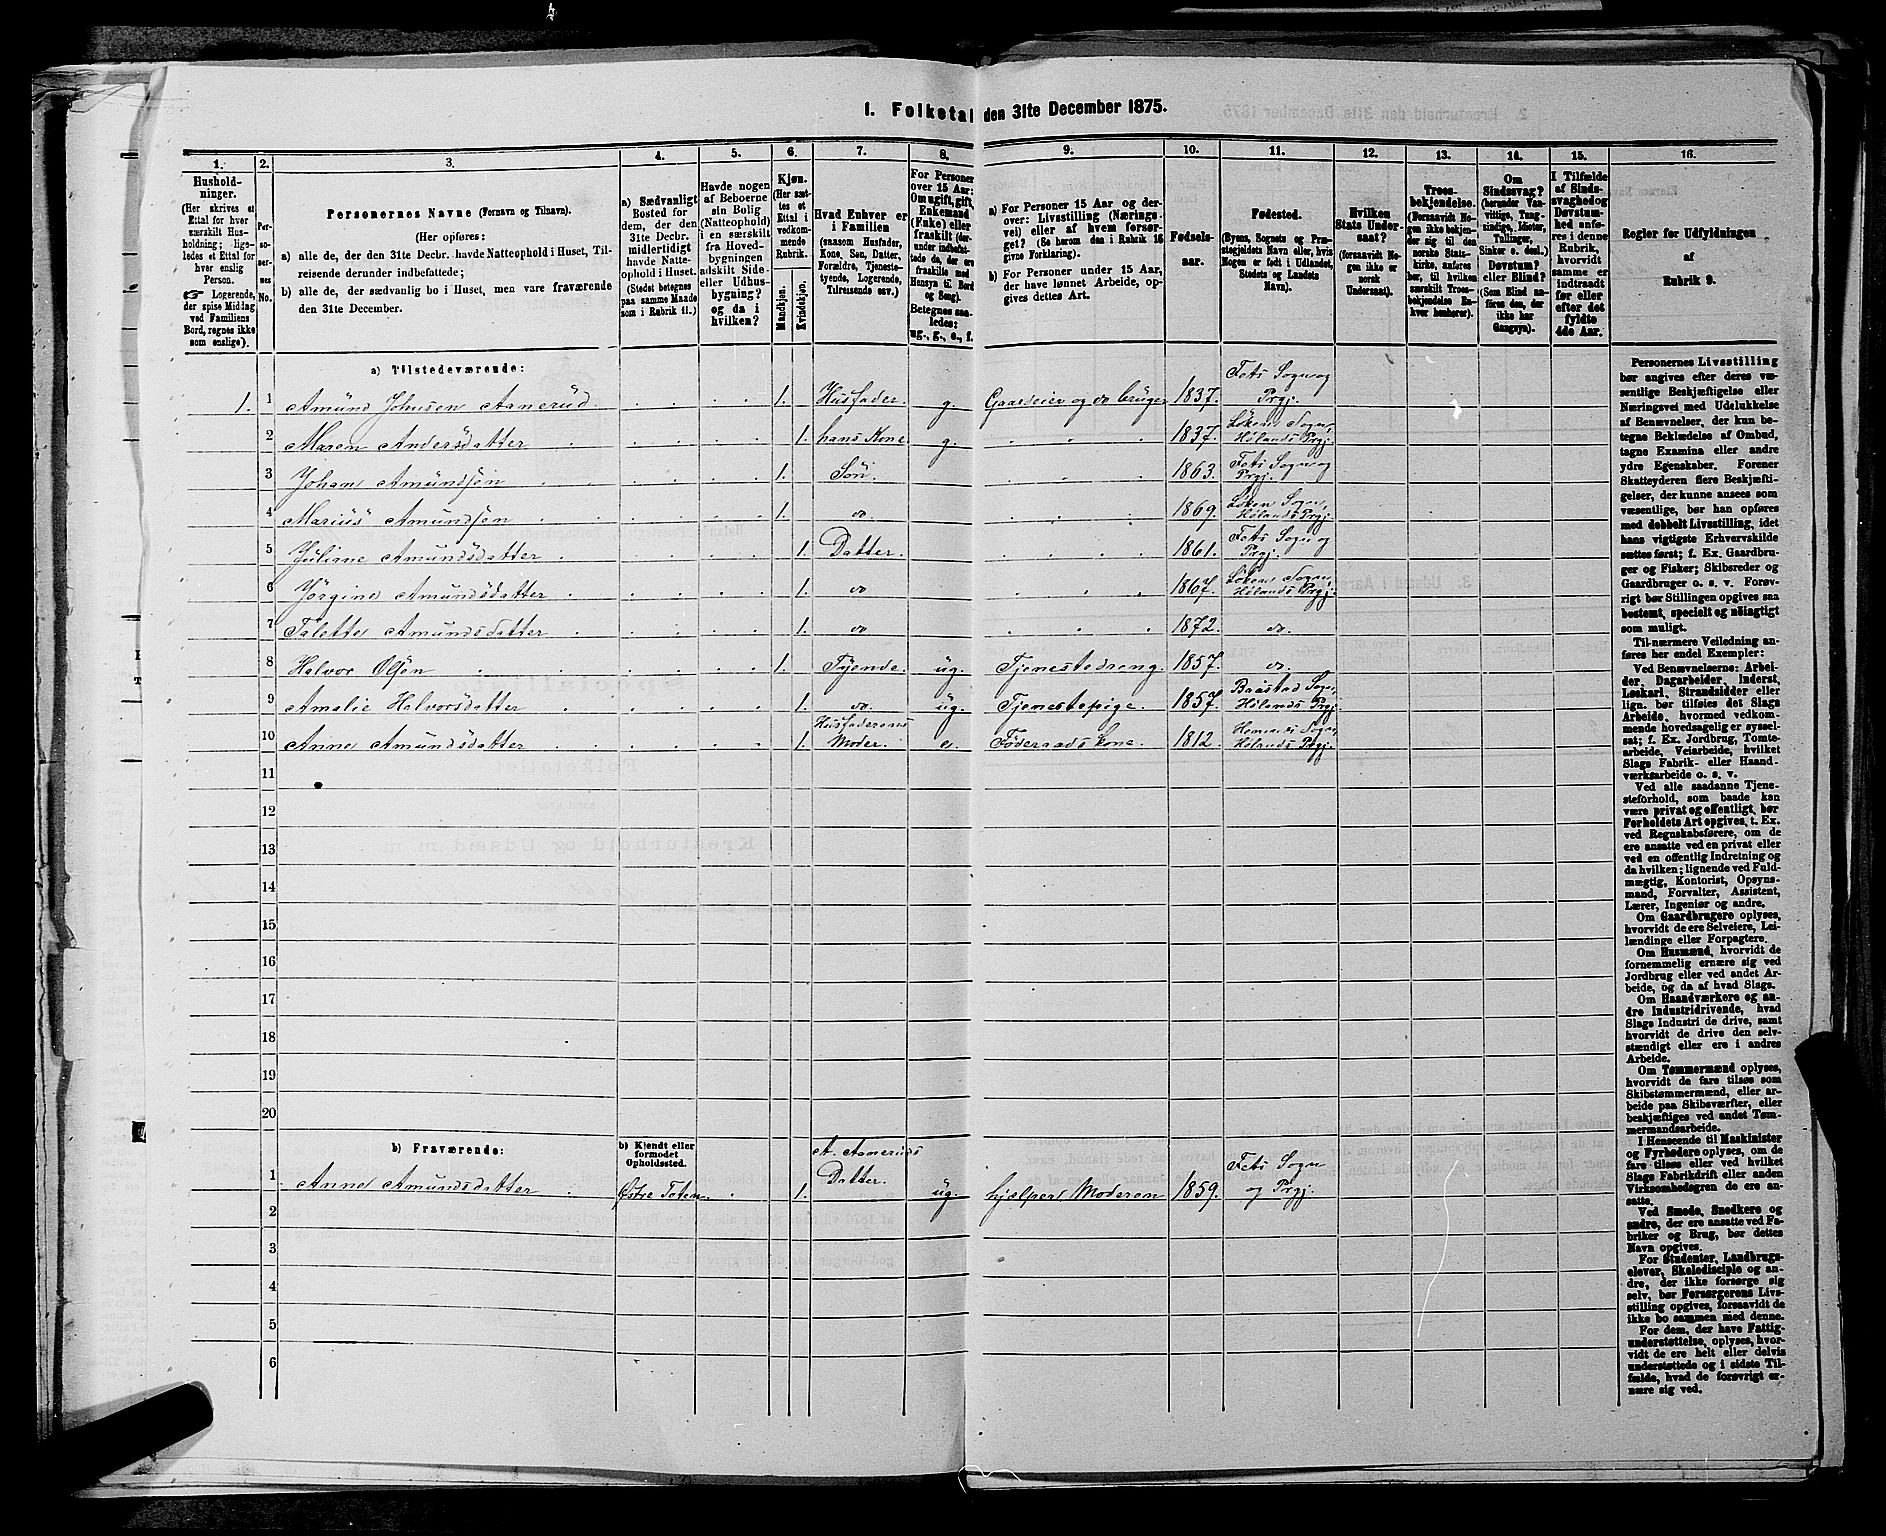 1. Folketal den 31te December 1875.
1. 2. 3. 4. 5. 6. 7. 8. 9. 10. 11. 12. 13. 14. 15. 16.
Hushold-
ninger.
(Her skrives et
Ettal for hver
særskilt Hus-
holdning; lige-
ledes et Ettal for
hver enslig
Person.
☞ Logerende,
der spise Middag
ved Familiens
Bord, regnes ikke
som enslige).
Per-
so-
ner-
nes
No.
Personernes Navne (Fornavn og Tilnavn).
(Her opføres:
a) alle de, der den 31te Decbr. havde Natteophold i Huset, Til-
reisende derunder indbefattede;
b) alle de, der sædvanlig bo i Huset, men vare fraværende
den 31te December.
a) Sædvanligt
Bosted for
dem, der den
31te Decbr.
midlertidigt
havde Natte-
ophold i Huset.
(Stedet betegnes
paa samme Maade
som i Rubrik 11.)
Havde nogen
af Beboerne
sin Bolig
(Natteophold)
i en særskilt
fra Hoved-
bygningen
adskilt Side-
eller Udhus-
bygning?
og da i
hvilken?
Kjøn.
(Her sæt-
tes et
Ettal i
vedkom-
mende
Rubrik.
Mandkjøn.
Kvindekjøn.
Hvad Enhver er
i Familien
(saasom Husfader,
Kone, Søn, Datter,
Forældre, Tjeneste-
tyende, Logerende,
Tilreisende osv.)
For Personer
over 15 Aar:
Om ugift, gift,
Enkemand
(Enke) eller
fraskilt (der-
under indbefat-
tede de, der
ere fraskilte med
Hensyn til Bord
og Seng).
Betegnes saa-
ledes:
ug., g., e., f.
a) For Personer 15 Aar og der-
over: Livsstilling (Nærings-
vei) eller af hvem forsør-
get? (Se herom den i Rubrik 16
givne Forklaring).
b) For Personer under 15 Aar,
der have lønnet Arbeide, op-
gives dettes Art.
Fødsels-
aar.
Fødested.
(Byens, Sognets og Præ-
stegjeldets Navn eller, hvis
Nogen er født i Udlandet,
Stedets og Landets
Navn).
Hvilken
Stats Under-
saat?
(forsaavidt No-
gen ikke er
norsk
Undersaat).
Troes-
bekjendelse.
(Forsaavidt No-
gen ikke bekjen-
der sig til den
norske Stats-
kirke, anføres
her særskilt Troes-
bekjendelse En-
hver henhører).
Om
Sindssvag?
(herunder Van-
vittige, Tung-
sindige, Idioter,
Tullinger,
Sinker o. desl.)
Døvstum?
eller Blind?
(Som Blind an-
føres den, der
ikke har
Gangsyn).
I Tilfælde
af Sinds-
svaghed og
Døvstum-
hed anfø-
res i denne
Rubrik,
hvorvidt
samme er
indtraadt
før eller
efter det
fyldte
4de Aar.
Regler for Udfyldningen
af
Rubrik 9.
a) Tilstedeværende:
1. 1 Amund Johnsen Aanerud 1. Husfader. g. Gaardeier og do bruger 1837. Fets Sogn og
Prgj.
2 Maren Andersdatter 1. hans Kone g. 1837. Löken Sogn,
Hölands Prgj.
3 Johan Amundsen 1. Sön. 1863. Fets Sogn og
Prgj.
4 Marius Amundsen 1. do 1869. Löken Sogn,
Hölands Prgj.
5 Juliane Amundsdatter 1. Datter. 1861. Fets Sogn og
Prgj.
6 Jörgine Amundsdatter 1. do 1867. Löken Sogn,
Hölands Prgj.
7 Talette Amundsdatter 1. do 1872. do.
8 Halvor Olsen 1. Tyende. ug. Tjenestedreng 1857. do.
9 Amalie Halvorsdatter 1. do. ug. Tjenestepige. 1857. Baastad Sogn,
Hölands Prgj.
10 Anne Amundsdatter 1. Husfaderens
Moder. e. Föderaads Kone. 1812. Hemnes Sogn,
Hölands Prgj.
11
12
13
14
15
16
17
18
19
20
b) Fraværende:
b) Kjendt eller
formodet
Opholdssted.
1 Anne Amundsdatter Østre Toten. 1. A. Aaneruds
Datter. ug. hjælper Moderen 1859. Fets Sogn
og Prgj.
2
3
4
5
6
Personernes Livsstilling
bør angives efter deres væ-
sentlige Beskjæftigelse eller
Næringsvei med Udelukkelse
af Benævnelser, der kun be-
tegne Beklædelse af Ombud,
tagne Examina eller andre
ydre Egenskaber. Forener
Skatteyderen flere Beskjæfti-
gelser, der kunne ansees som
væsentlige, bør han opføres
med dobbelt Livsstilling, idet
hans vigtigste Erhvervskilde
sættes først; f. Ex. Gaardbru-
ger og Fisker; Skibsreder og
Gaardbruger o. s. v. Forøv-
rigt bør Stillingen opgives saa
bestemt, specielt og nøiagtigt
som muligt.
Til nærmere Veiledning an-
føres her endel Exempler:
Ved Benævnelserne: Arbei-
der, Dagarbeider, Inderst,
Løskarl, Strandsidder eller
lign. bør tilføies det Slags
Arbeide, hvormed vedkom-
mende hovedsagelig er syssel-
sat; f. Ex. Jordbrug, Tomte-
arbeide, Veiarbeide, hvilket
Slags Fabrik- eller Haand-
værksarbeide o. s. v.
Ved alle saadanne Tjene-
steforhold, som baade kan
være privat og offentligt, bør
Forholdets Art opgives, t. Ex.
ved Regnskabsførere, om de
ere ansatte ved en privat eller
ved en offentlig Indretning og
da hvilken; lignende ved Fuld-
mægtig, Kontorist, Opsyns-
mand, Forvalter, Assistent,
Lærer, Ingeniør og andre.
Om Gaardbrugere oplyses,
hvorvidt de ere Selveiere, Lei-
lændinge eller Forpagtere.
Om Husmænd, hvorvidt de
fornemmelig ernære sig ved
Jordbrug eller ved andet Ar-
beide, og da af hvad Slags.
Om Haandværkere og an-
dre Industridrivende, hvad
Slags Industri de drive, samt
hvorvidt de drive den selv-
stændigt eller ere i andres
Arbeide.
Om Tømmermænd oplyses,
hvorvidt de fare tilsøs som
Skibstømmermænd, eller ar-
beide paa Skibsværfter, eller
beskjæftiges ved andet Tøm-
mermandsarbeide.
I Henseende til Maskinister
og Fyrbødere oplyses, om de
fare tilsøs eller ved hvilket
Slags Fabrikdrift eller anden
Virksomhedsgren de ere an-
satte.
Ved Smede, Snedkere og
andre, der ere ansatte ved Fa-
briker og Brug, bør dettes
Navn opgives.
For Studenter, Landbrugs-
elever, Skoledisciple og an-
dre, der ikke forsørge sig
selv, bør Forsørgerens Livs-
stilling opgives, forsaavidt de
ikke bo sammen med denne.
For dem, der have Fattig-
understøttelse, oplyses, hvor-
vidt de ere helt eller delvis
understøttede og i sidste Til-
fælde, hvad de forøvrigt er-
nære sig ved.